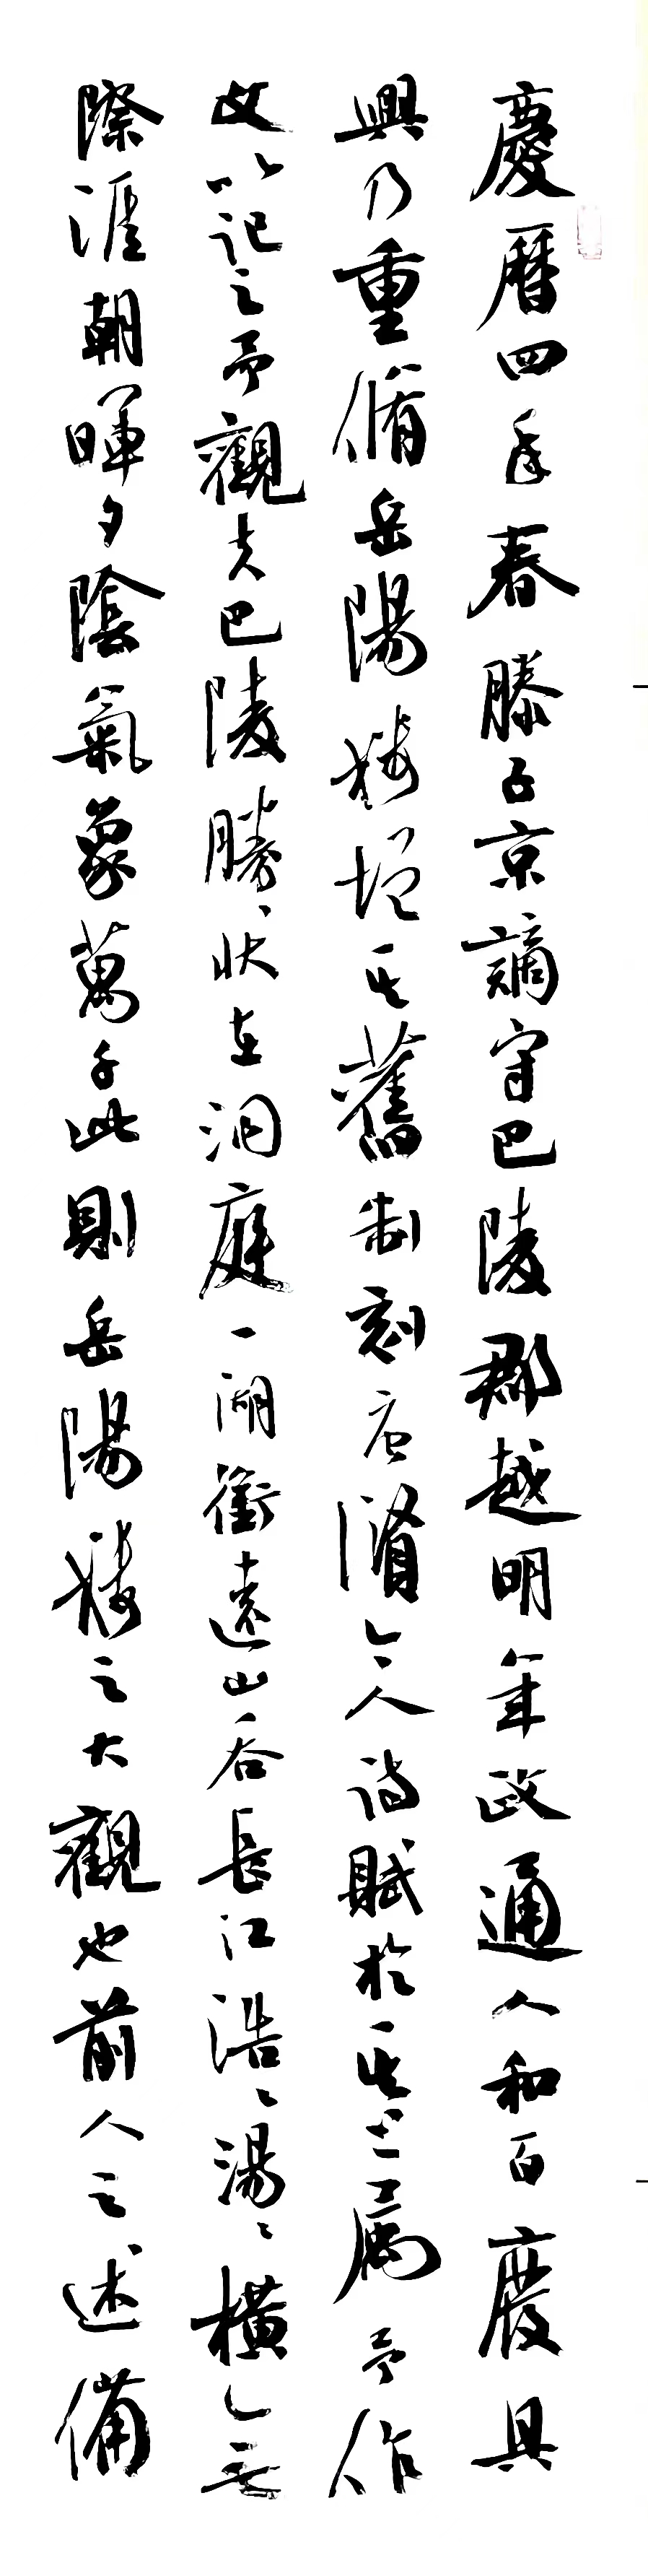 慶曆四年春滕子京謫守巴陵郡越明年政通人和百廢具
興乃重脩岳陽樓增其舊制刻唐賢今人詩賦於其上屬予作
文以記之予觀夫巴陵勝狀在洞庭一湖銜遠山吞長江浩〻湯〻橫無
際涯朝暉夕陰氣象萬千此則岳陽樓之大觀也前人之述備